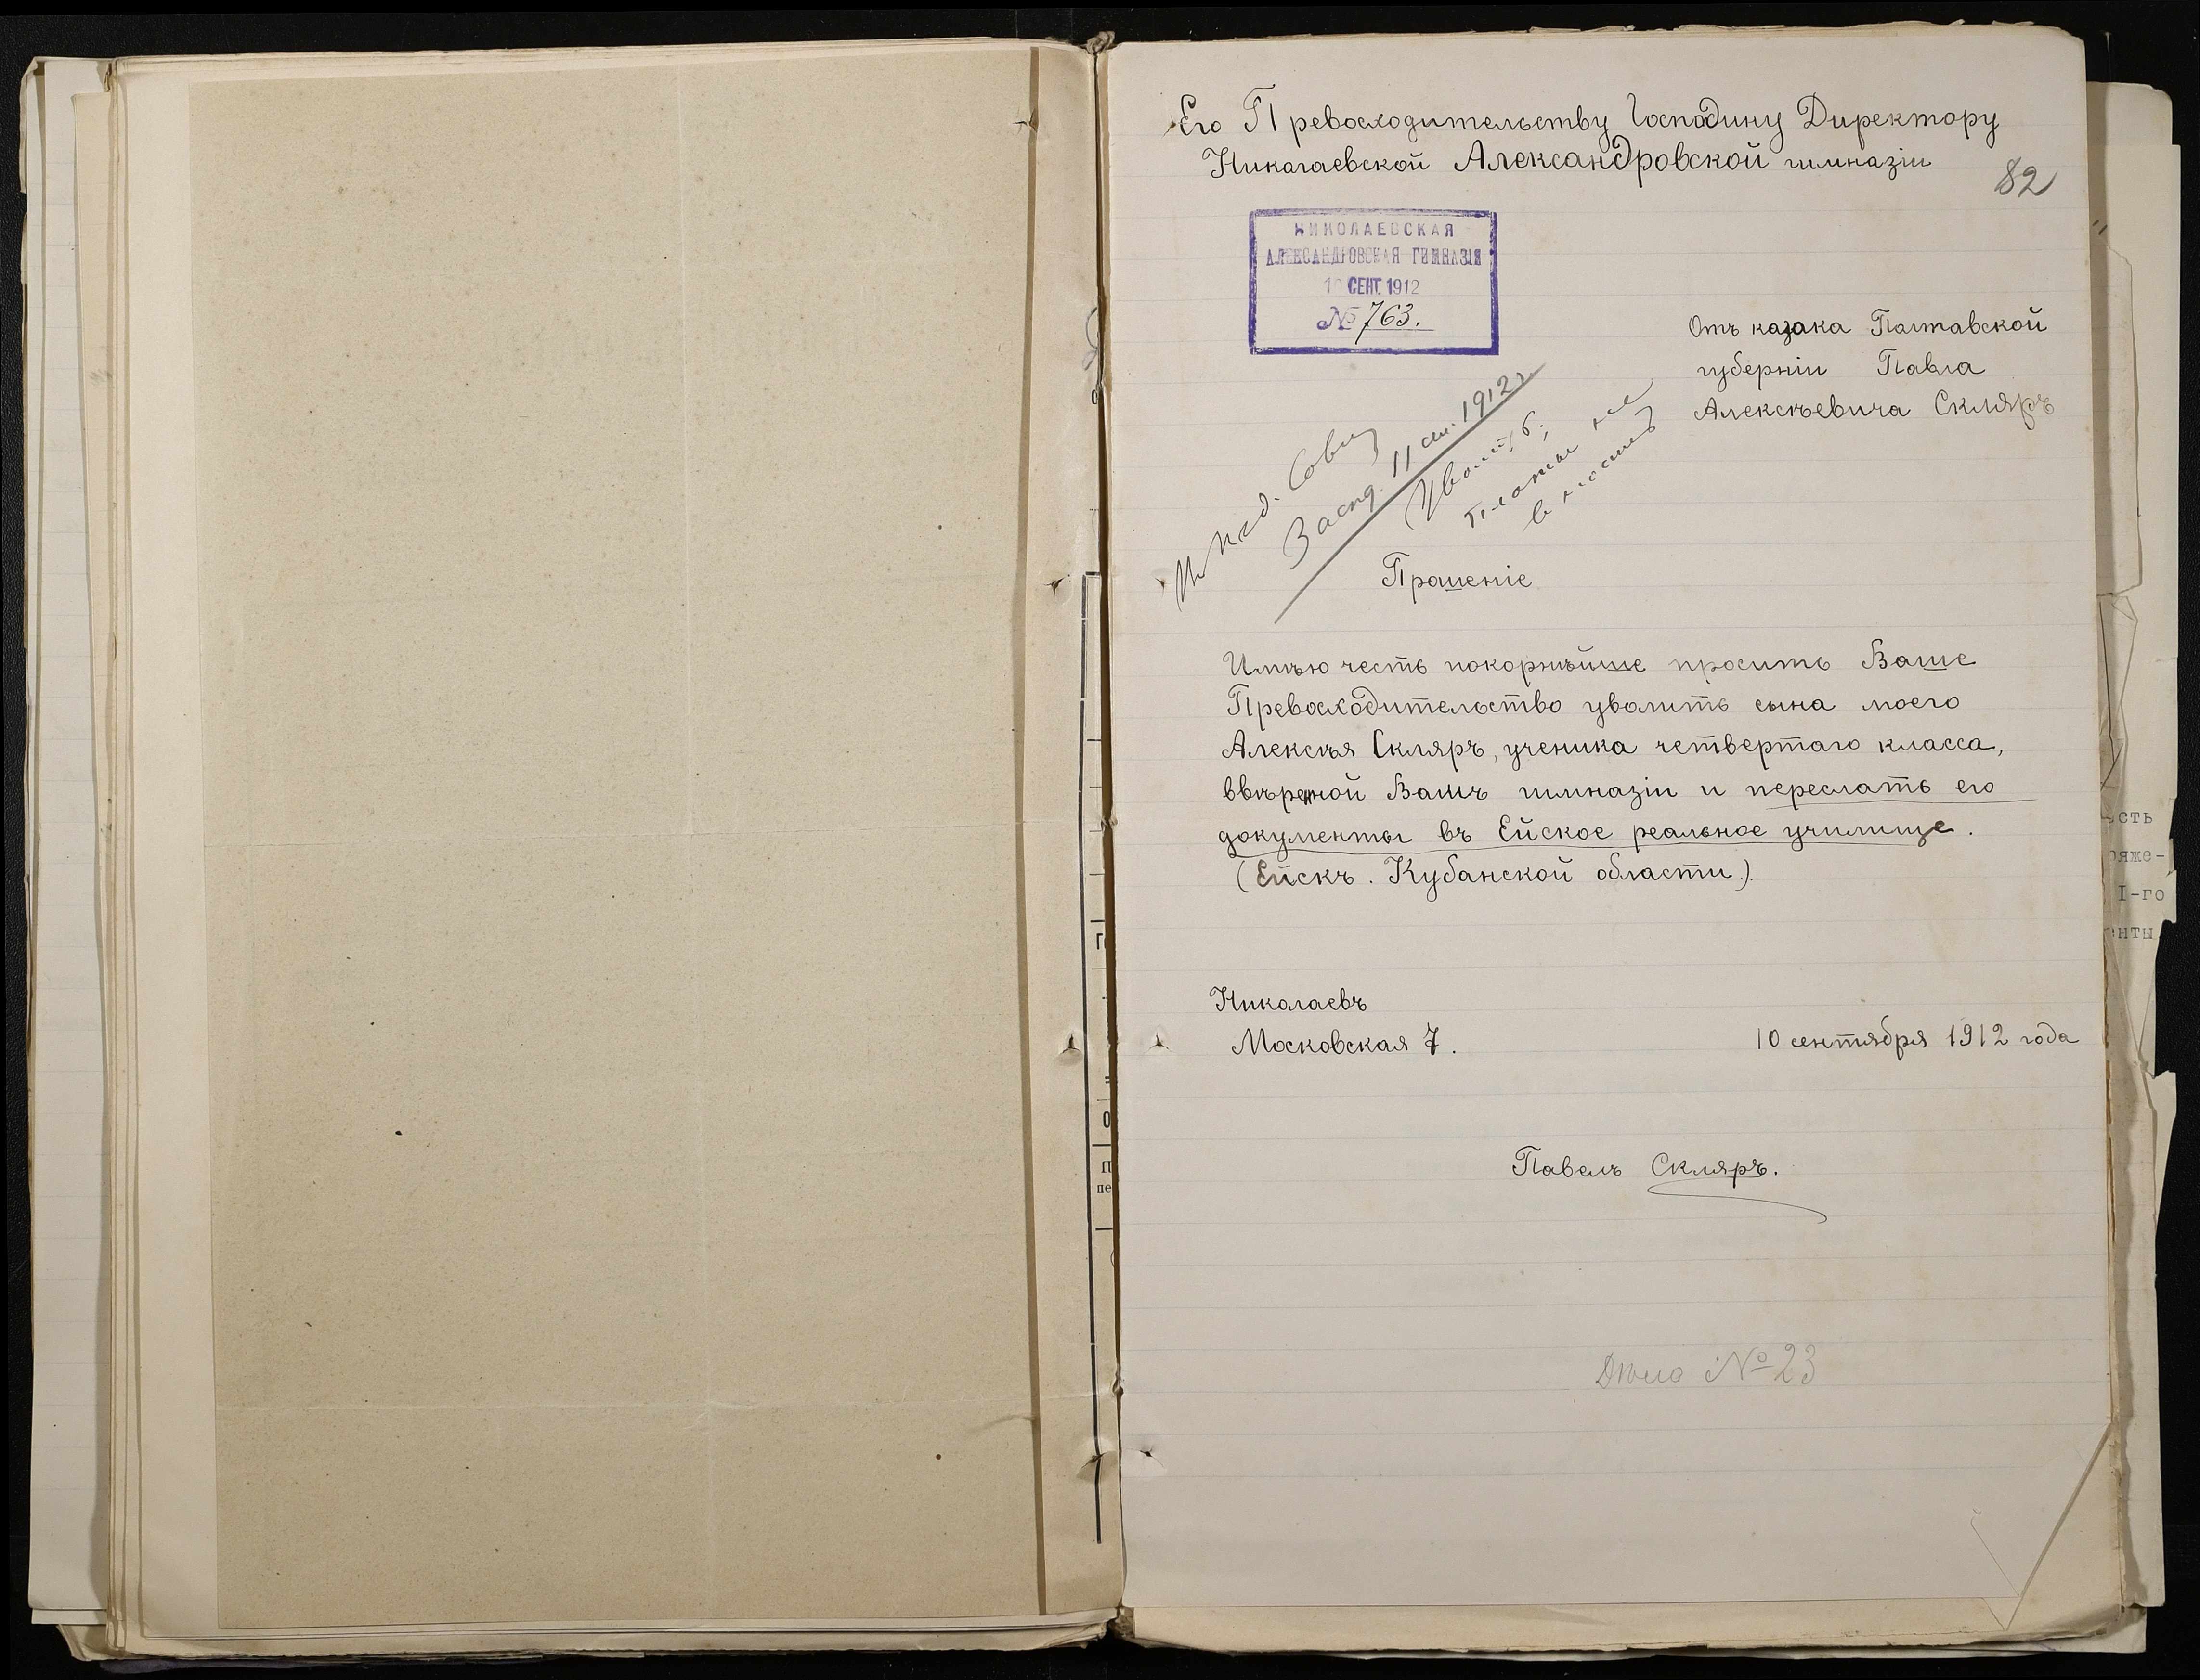 Его Превосходительству Господину Директору
Николаевской Александровской гимназіи
82
НИКОЛАЕВСКАЯ
АЛЕКСАНДРОВСКАЯ ГИМНАЗІЯ
СЕНТ. 1912
№ 763.
Отъ казака Полтавской
губерніи Павла
Алексѣевича Скляръ
Засѣд. 11 сен. 1912 г.
платы не
Прошеніе
Имѣю честь покорнѣйше просить Ваше
Превосходительство уволить сына моего
Алексѣя Скляръ, ученика четвертаго класса,
ввѣренной Вамъ гимназіи и переслать его
документы въ Ейское реальное училище.
(Ейскъ. Кубанской области).
Николаевъ
Московская 7.
10 сентября 1912 года
Павелъ Скляръ.
Дѣло № 23
сть
ряже-
I-го
енты